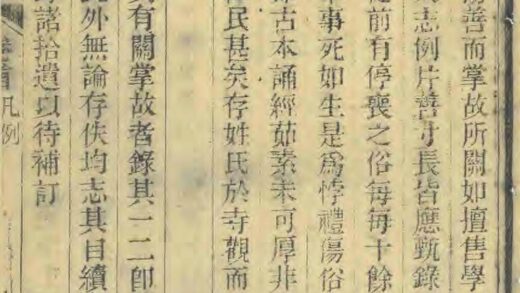 善而掌故所關如擅售學
志例片善寸長皆應甄錄
前有停喪之俗每每十餘
事死如生是爲悖禮傷俗
古本誦經茹素未可厚非
民甚矣存姓氏於寺觀而
有關掌故者錄其一二卽
外無論存佚均志其目續
諸拾遺以待補訂
凡例